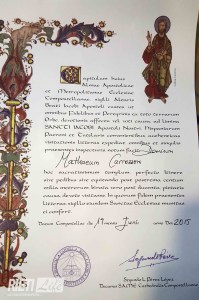 Capitulum huius
Almae Apostolicae
et Metropolitanae Ecclesiae
Compostellanae sigilli Altaris
Beati Iacobi Apostoli custos ut
omnibus Fidelibus et Peregrinis ex toto terrarum
Orbe devotionis affectu vel voti causa ad limina
SANCTI IACOBI Apostoli Nostri Hispaniarum
Patroni et Tutelaris convenientibus authenticas
visitationis litteras expediat omnibus et singulis
praesentes inspecturis notum facit Dominum
hoc sacratissimum templum perfecto itinere
sive pedibus sive equitando post postrema centum
milia metrorum birota vero post ducenta, pietatis
causa devote visitasse. In quorum fidem praesentes
litteras sigillo eiusdem Sanctae Ecclesiae munitas
ei confert.
Datum Compostellae die anno Dni 2015
Segundo L. Pérez López
Decanus S.A.M.E. Cathedralis Compostellanae